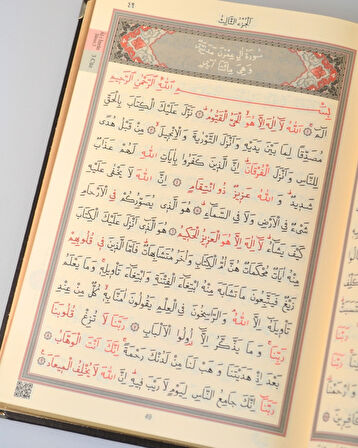 ٤٩
اَلْجُزْءُ الثَّالِثُ
سُورَةُ اٰلِ عِمْرٰنَ مَدَنِيَّةٌ
وَهِيَ مِائَتَا اٰيَةٍ
بِسْمِ اللّٰهِ الرَّحْمٰنِ الرَّحِيمِ
الٓمٓ ۞ اَللّٰهُ لَٓا اِلٰهَ اِلَّا هُوَ الْحَيُّ الْقَيُّومُ ۞ نَزَّلَ عَلَيْكَ الْكِتَابَ بِالْحَقِّ
مُصَدِّقًا لِمَا بَيْنَ يَدَيْهِ وَاَنْزَلَ التَّوْرٰيةَ وَالْاِنْجِيلَ ۞ مِنْ قَبْلُ هُدًى
لِلنَّاسِ وَاَنْزَلَ الْفُرْقَانَ اِنَّ الَّذِينَ كَفَرُوا بِاٰيَاتِ اللّٰهِ لَهُمْ عَذَابٌ
شَدِيدٌ وَاللّٰهُ عَزِيزٌ ذُو انْتِقَامٍ ۞ اِنَّ اللّٰهَ لَا يَخْفٰى عَلَيْهِ
شَيْءٌ فِي الْاَرْضِ وَلَا فِي السَّمَٓاءِ ۞ هُوَ الَّذِي يُصَوِّرُكُمْ فِي الْاَرْحَامِ
كَيْفَ يَشَٓاءُ لَٓا اِلٰهَ اِلَّا هُوَ الْعَزِيزُ الْحَكِيمُ ۞ هُوَ الَّذِٓي اَنْزَلَ عَلَيْكَ الْكِتَابَ
مِنْهُ اٰيَاتٌ مُحْكَمَاتٌ هُنَّ اُمُّ الْكِتَابِ وَاُخَرُ مُتَشَابِهَاتٌ فَاَمَّا الَّذِينَ فِي قُلُوبِهِمْ
زَيْغٌ فَيَتَّبِعُونَ مَا تَشَابَهَ مِنْهُ ابْتِغَٓاءَ الْفِتْنَةِ وَابْتِغَٓاءَ تَأْوِيلِهِ وَمَا يَعْلَمُ
تَأْوِيلَهُٓ اِلَّا اللّٰهُ وَالرَّاسِخُونَ فِي الْعِلْمِ يَقُولُونَ اٰمَنَّا بِهِ كُلٌّ مِنْ عِنْدِ
رَبِّنَا وَمَا يَذَّكَّرُ اِلَّٓا اُولُوا الْاَلْبَابِ ۞ رَبَّنَا لَا تُزِغْ قُلُوبَنَا
بَعْدَ اِذْ هَدَيْتَنَا وَهَبْ لَنَا مِنْ لَدُنْكَ رَحْمَةً اِنَّكَ اَنْتَ الْوَهَّابُ ۞
رَبَّنَٓا اِنَّكَ جَامِعُ النَّاسِ لِيَوْمٍ لَا رَيْبَ فِيهِ اِنَّ اللّٰهَ لَا يُخْلِفُ الْمِيعَادَ ۞
49